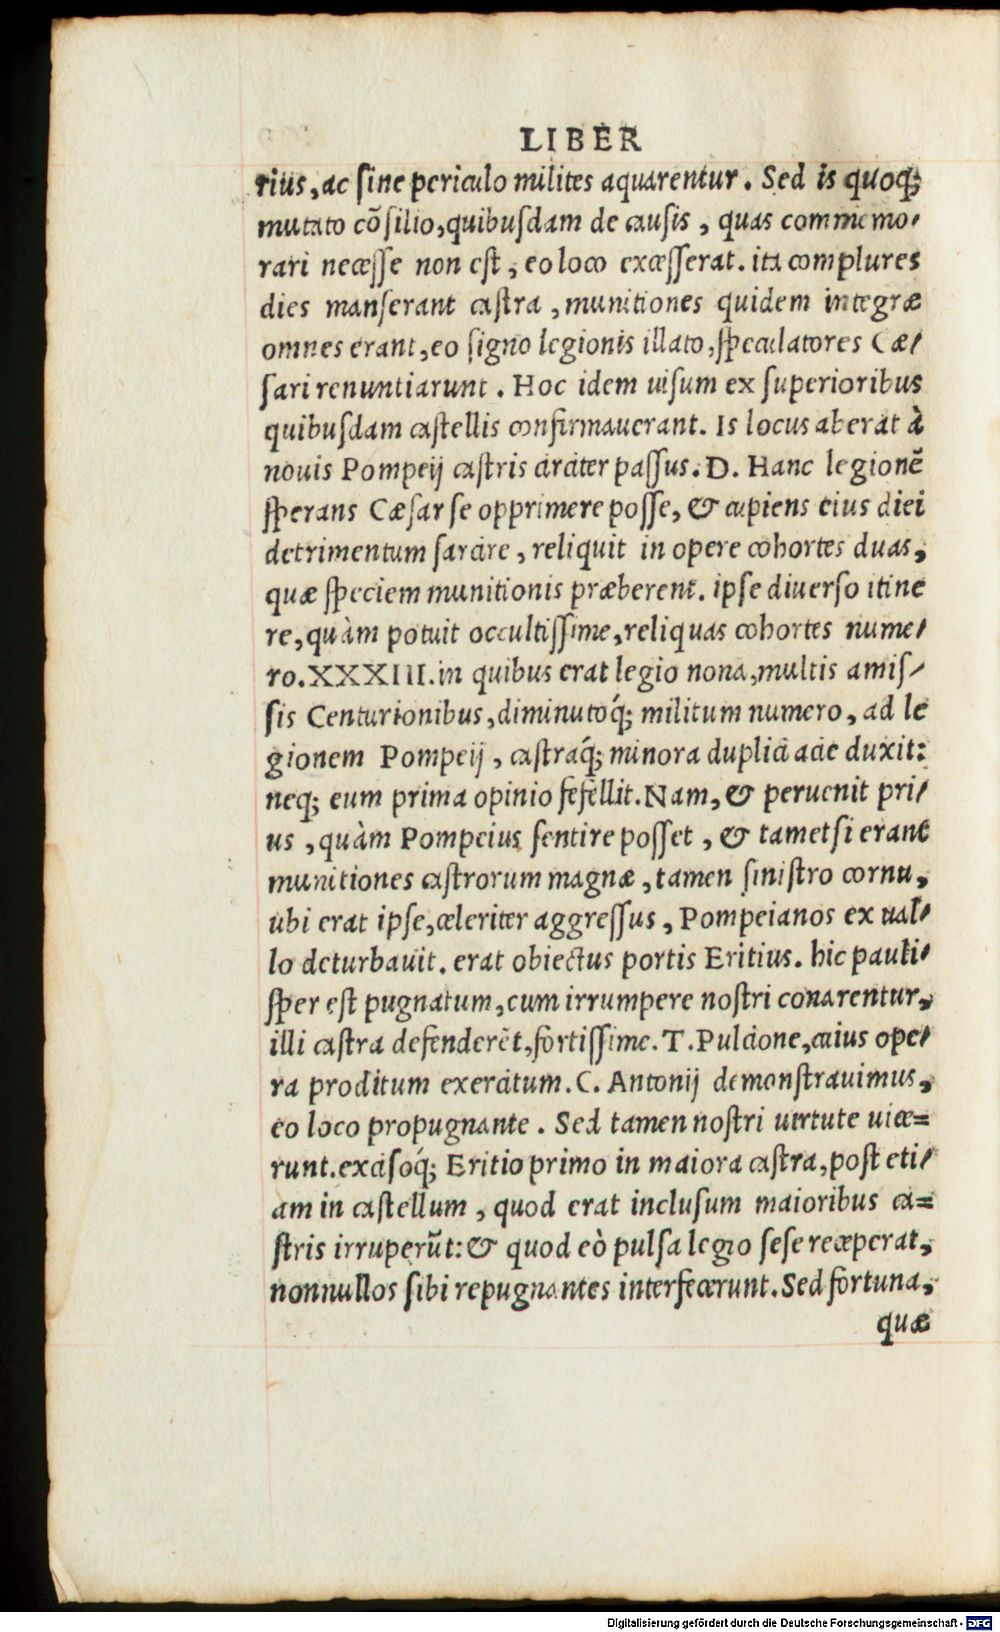 LIBER
rius, ac sine periculo milites aquarentur. Sed is quoq;
mutato cõsilio, quibusdam de causis, quas commemo-
rari necesse non est, eo loco excesserat. ita complures
dies manserant castra, munitiones quidem integræ
omnes erant, eo signo legionis illato, speculatores Cæ-
sari renuntiarunt. Hoc idem uisum ex superioribus
quibusdam castellis confirmauerant. Is locus aberat à
nouis Pompeij castris circiter passus. D. Hanc legionẽ
sperans Cæsar se opprimere posse, & cupiens eius diei
detrimentum sarcire, reliquit in opere cohortes duas,
quæ speciem munitionis præberent. ipse diuerso itine
re, quàm potuit occultissime, reliquas cohortes nume-
ro. XXXIII. in quibus erat legio nona, multis amis-
sis Centurionibus, diminutoq́; militum numero, ad le
gionem Pompeij, castraq́; minora duplici acie duxit:
neq; eum prima opinio fefellit. Nam, & peruenit pri-
us, quàm Pompeius sentire posset, & tametsi erant
munitiones castrorum magnæ, tamen sinistro cornu,
ubi erat ipse, celeriter aggressus, Pompeianos ex ual-
lo deturbauit. erat obiectus portis Eritius. hic pauli-
sper est pugnatum, cum irrumpere nostri conarentur,
illi castra defenderẽt, fortissime. T. Pulcione, cuius ope-
ra proditum exercitum. C. Antonij demonstrauimus,
eo loco propugnante. Sed tamen nostri uirtute uice=
runt. excisoq́; Eritio primo in maiora castra, post eti-
am in castellum, quod erat inclusum maioribus ca=
stris irruperũt: & quod eò pulsa legio sese receperat,
nonnullos sibi repugnantes interfecerunt. Sed fortuna,
quæ
Digitalisierung gefördert durch die Deutsche Forschungsgemeinschaft - DFG